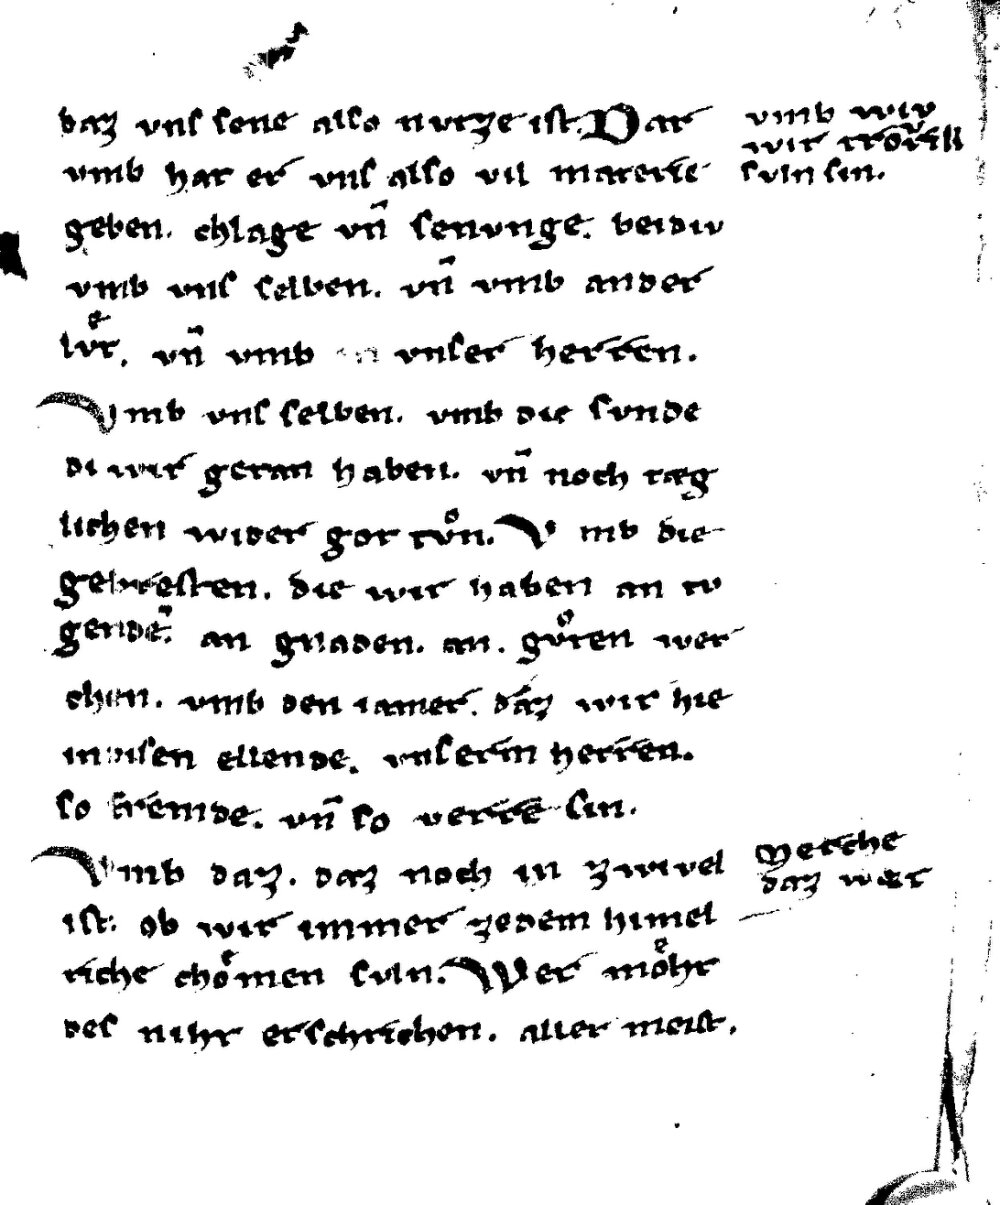 daz vnſ ſene alſo nvtze iſt. Dar
vmb hat er vnſ alſo vil materie
geben. chlage vn̄ ſenvnge. beidiv
vmb vnſ ſelben. vn̄ vmb ander
lvͤt. vn̄ vmb vnſer herren.
Vmb vnſ ſelben. vmb die ſvnde
di wir getan haben. vn̄ noch tæg
lichen wider got tvͦn. Vmb die
gebreſten. die wir haben an tv
genden̄. an gnaden. an. gvͦten wer
chen. vmb den iamer. daz wir hie
in diſen ellende. vnſerm herren.
ſo fremde. vn̄ ſo verre ſin.
Vmb daz. daz noch in zwivel
iſt. ob wir immer zedem himel
riche choͤmen ſvln. Wer moͤht
deſ niht erſchrichen. aller meiſt.
vmb wiv
wir trovrik
ſvln ſin.
Merche
daz wær